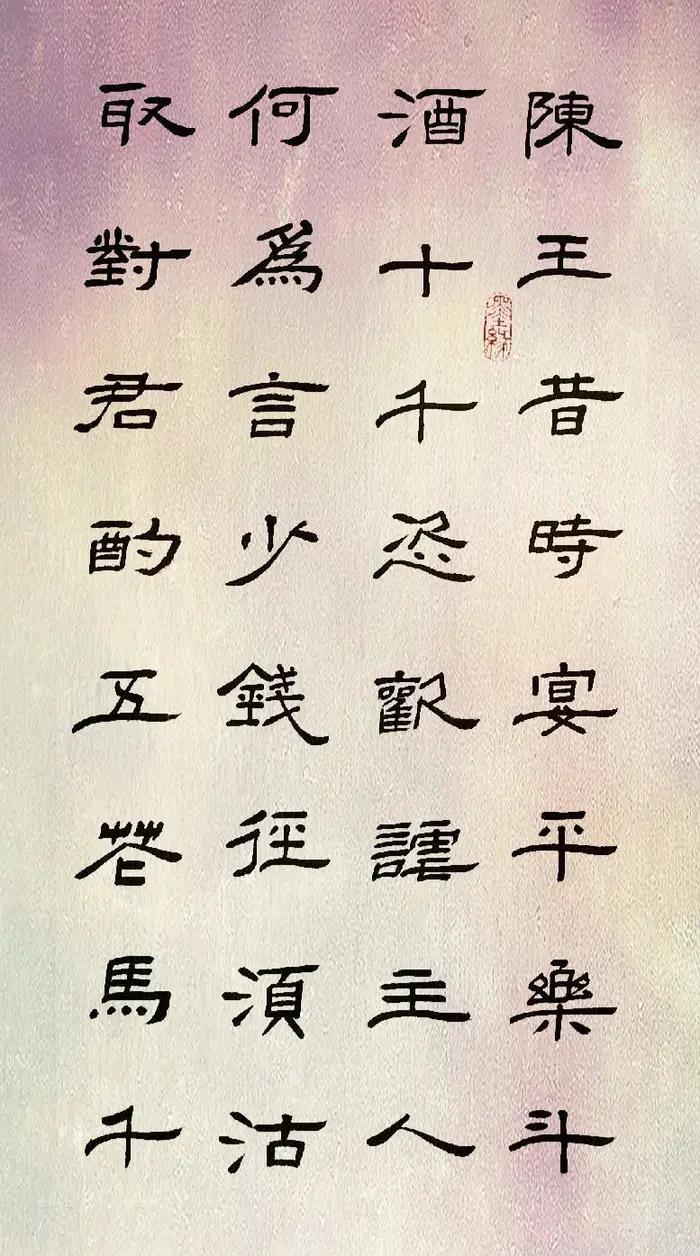 陳王昔時宴平樂斗
酒十千恣歡謔主人
何爲言少錢徑須沽
取對君酌五花馬千
墨緣